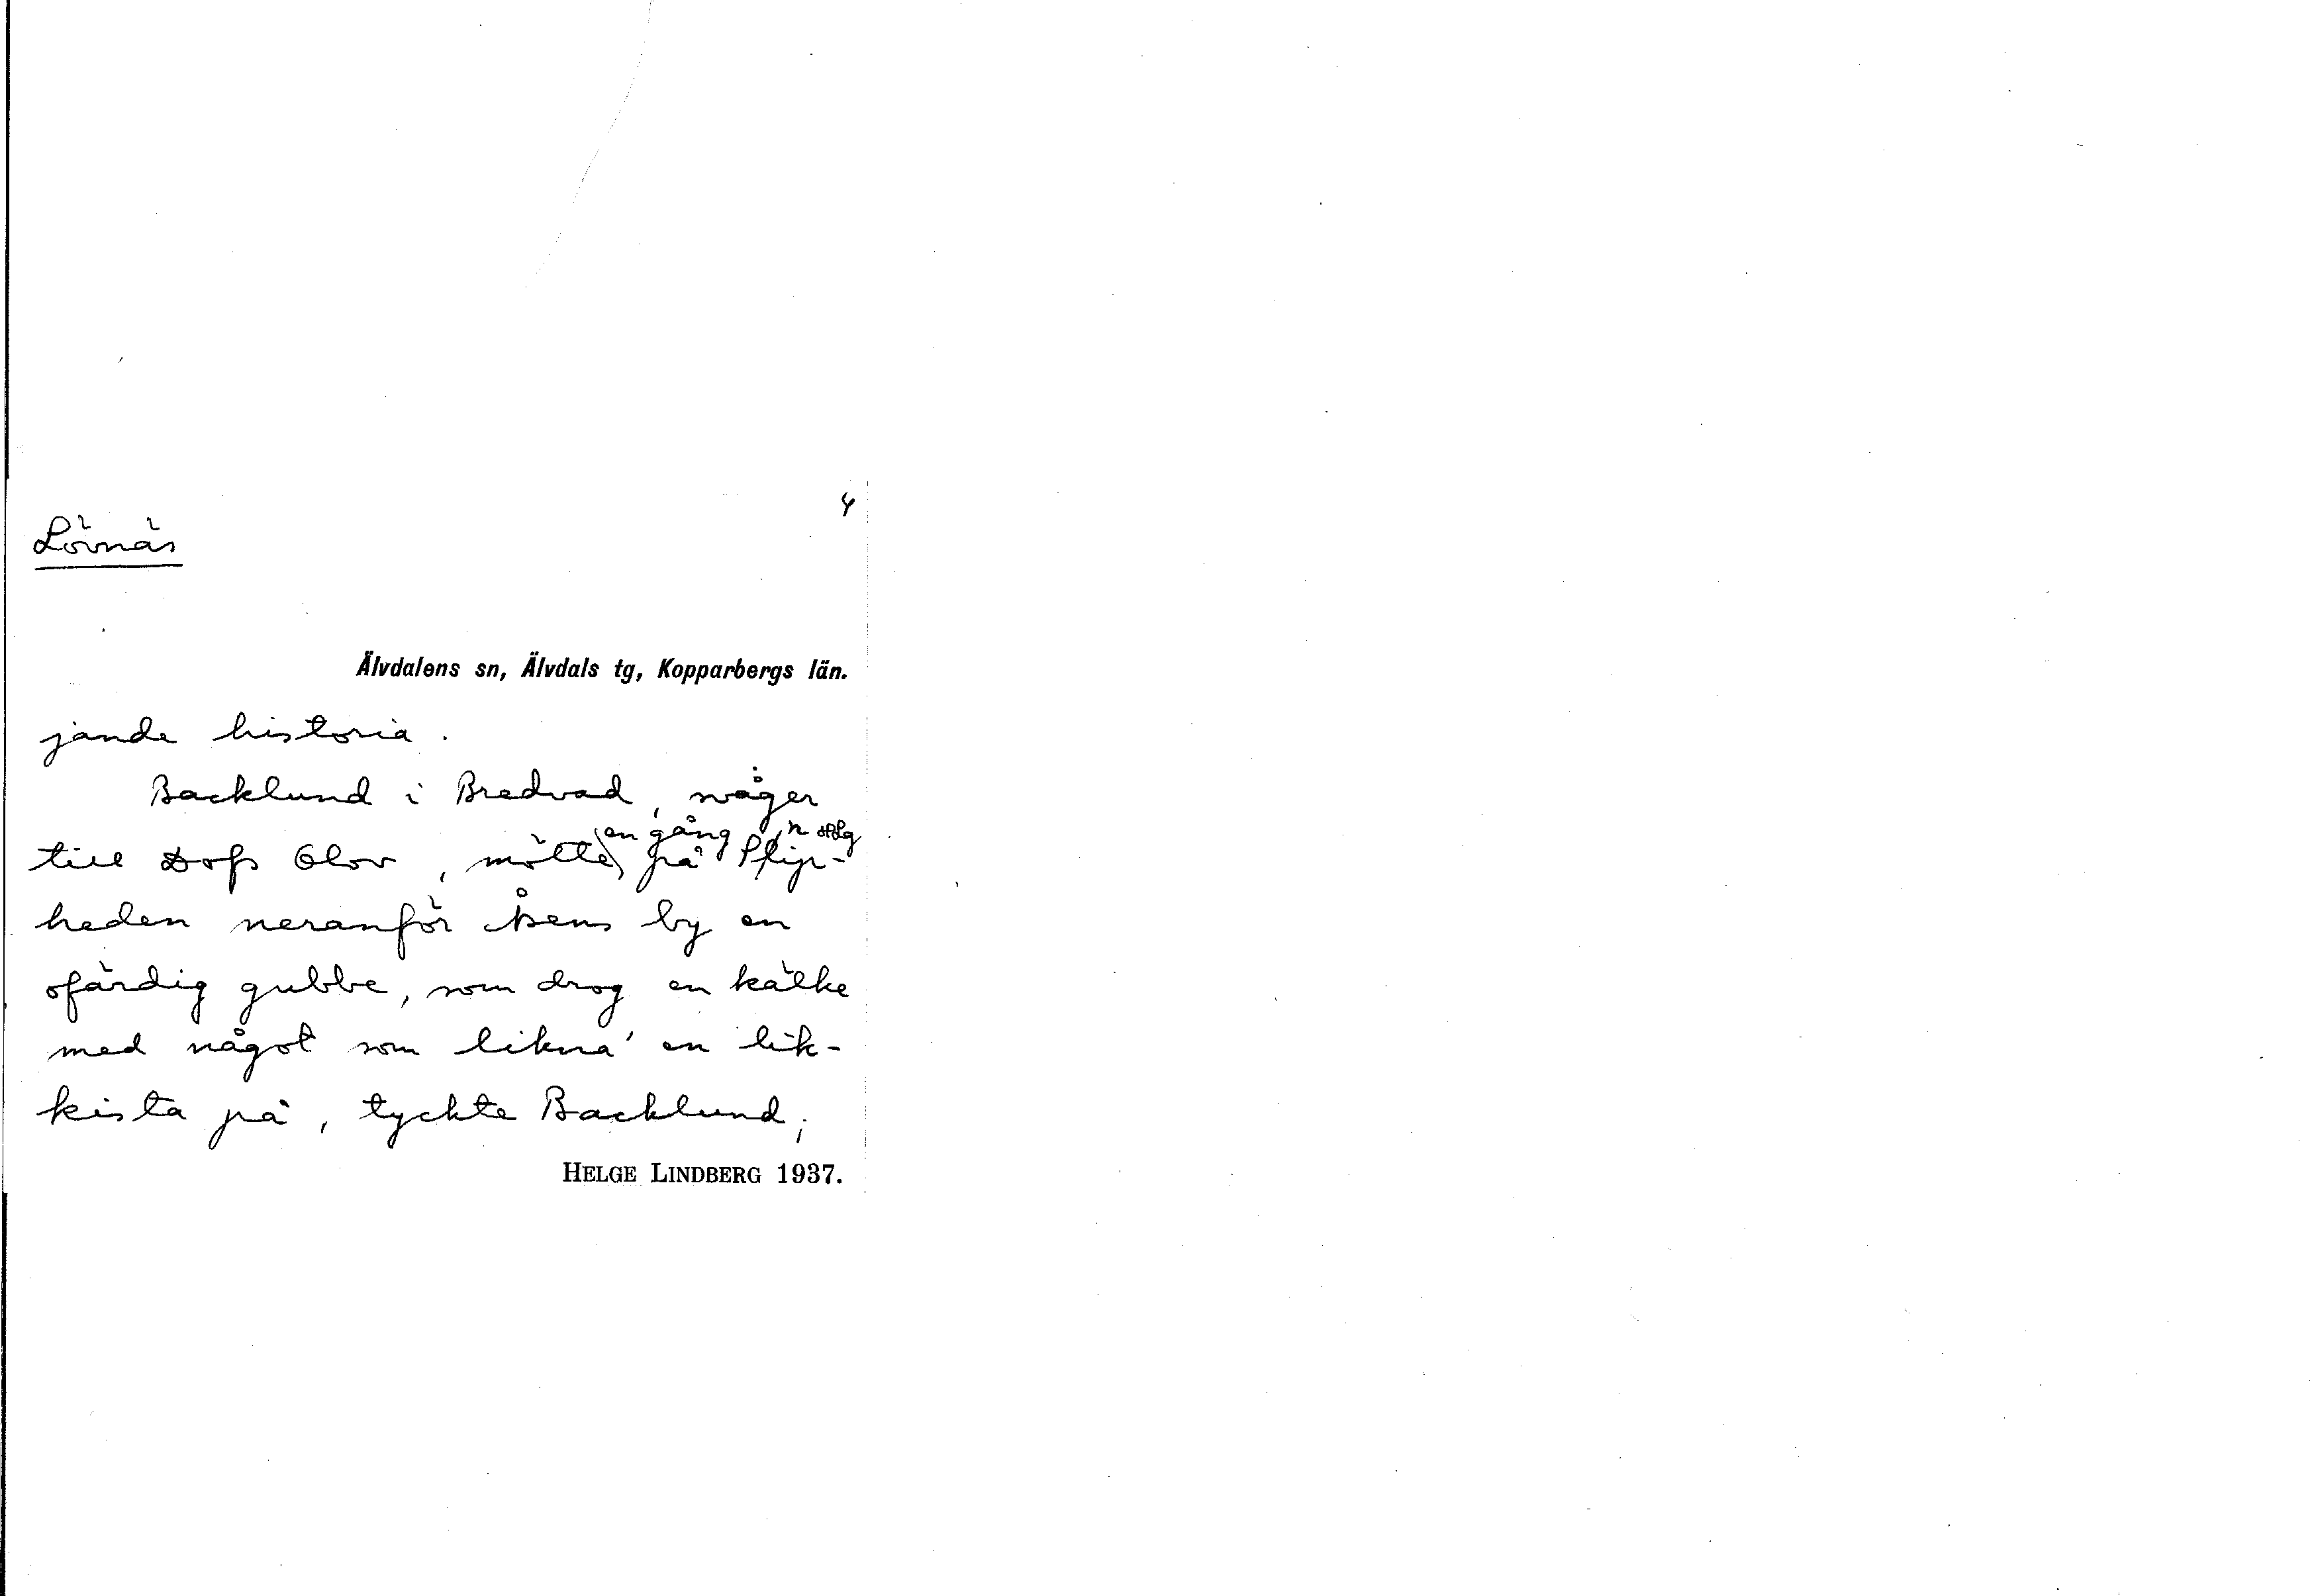 4
Lövnäs
Älvdalens sn, Älvdals tg, Kopparbergs län.
jande historia.
Backlund i Bredvad, svåger
en gång
till Dofs Olov, mötte på
heden neranför Åsens by en
ofärdig gubbe, som drog en kälke
med något som likna' en lik-
kista på, tyckte Backlund;
HELGE LINDBERG 1937.